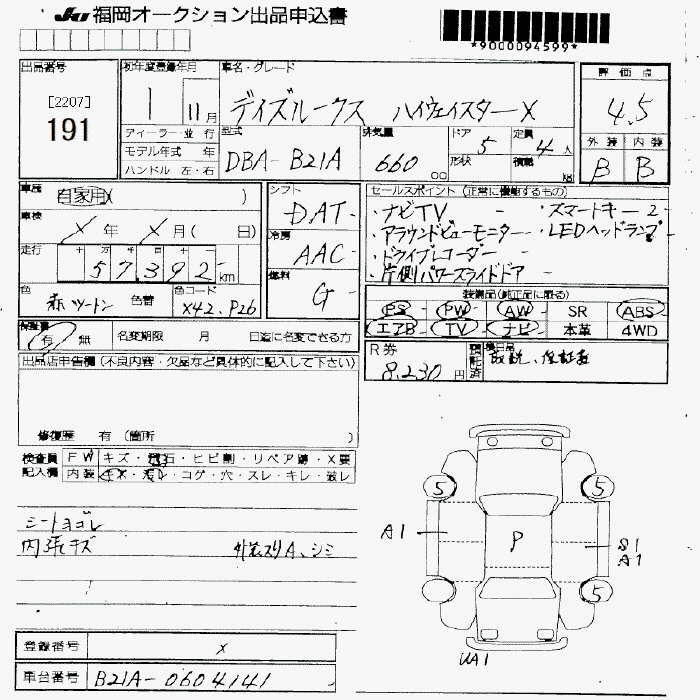 JU 福岡オークション出品申込書
*9000094599*
出品番号
[2207]
191
初年度登録年月
1 11月
車名・グレード
デイズルークス ハイウェイスターX
評価点
4.5
外装 内装
B B
ディーラー・並行
モデル年式 年
ハンドル 左・右
型式
DBA-B21A
排気量
660 cc
ドア 5
形状
定員 4人
積載 kg
車歴 自家用( )
車検 X年 X月( 日)
走行 十 万 千 百 十 一
57,392 km
色 赤ツートン 色替
色コード X42, P26
シフト
DAT
冷房
AAC
燃料
G
セールスポイント (正常に機能するもの)
・ナビTV ・スマートキー2
・アラウンドビューモニター ・LEDヘッドランプ
・ドライブレコーダー
・片側パワースライドドア
装備品(純正品に限る)
PS PW AW SR ABS
エアB TV ナビ 本革 4WD
保証書
有 無 名変期限 月 日迄に名変できる方
R券
8,230 円
預託済
後日品
取説、保証書
出品店申告欄(不良内容・欠品など具体的に記入して下さい)
修復歴 有 (箇所 )
検査員記入欄
FW キズ・飛石・ヒビ割・リペア跡・X要
内装 キズ・汚れ・コゲ・穴・スレ・キレ・破レ
シートヨゴレ
内張キズ 外装スリA、シミ
5 5
A1 P S1
A1
5
UA1
登録番号 X
車台番号 B21A-0604141